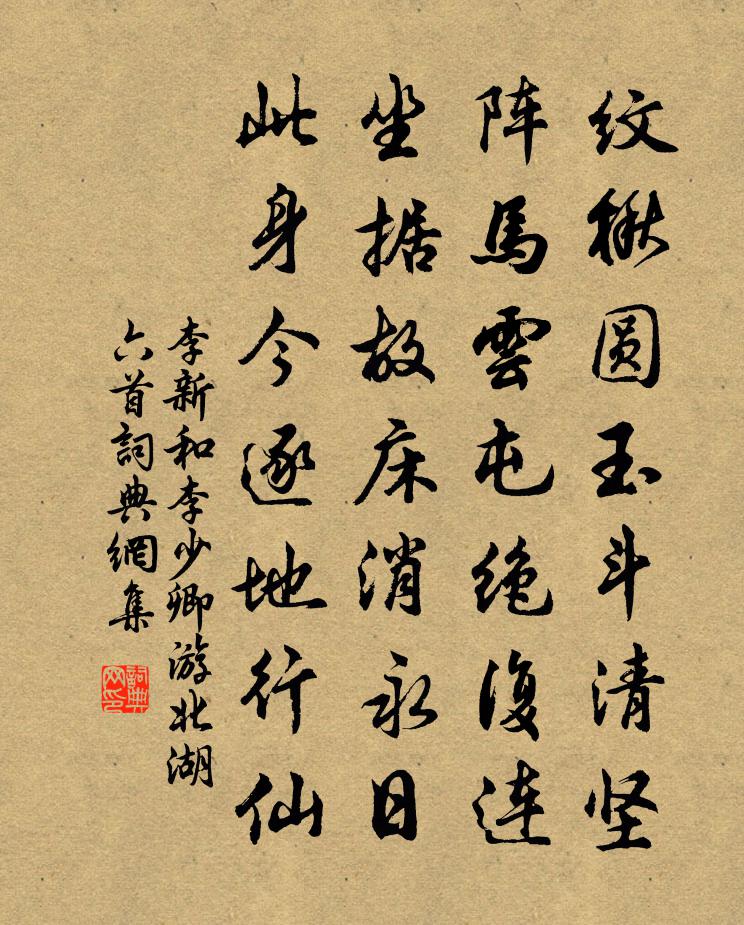 纹楸圆玉斗清坚
阵馬雲屯绝復連
坐据故床消永日
此身今逐地行仙
李新和李少卿游北湖
六首詞典網集
詞典网印